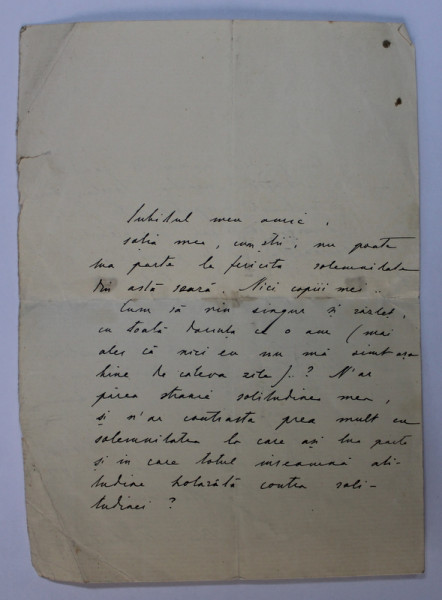 Iubitul meu amic,
soția mea, cum știi, nu poate
lua parte la fericita solemnitate
din astă seară. Nici copiii mei..
Cum să vin singur și răzleț,
cu toată dorința ce o am (mai
ales că nici eu nu mă simt așa
bine de cateva zile)..? N'ar
părea stranie solitudinea mea,
și n'ar contrasta prea mult cu
solemnitatea la care ași lua parte
și in care totul inseamnă ati-
tudine hotarâtă contra soli-
tudinei?